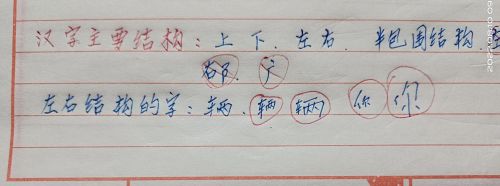 汉字主要结构：上下.左右.半包围结构.
部.广
左右结构的字：辆.辆 辆 你 你